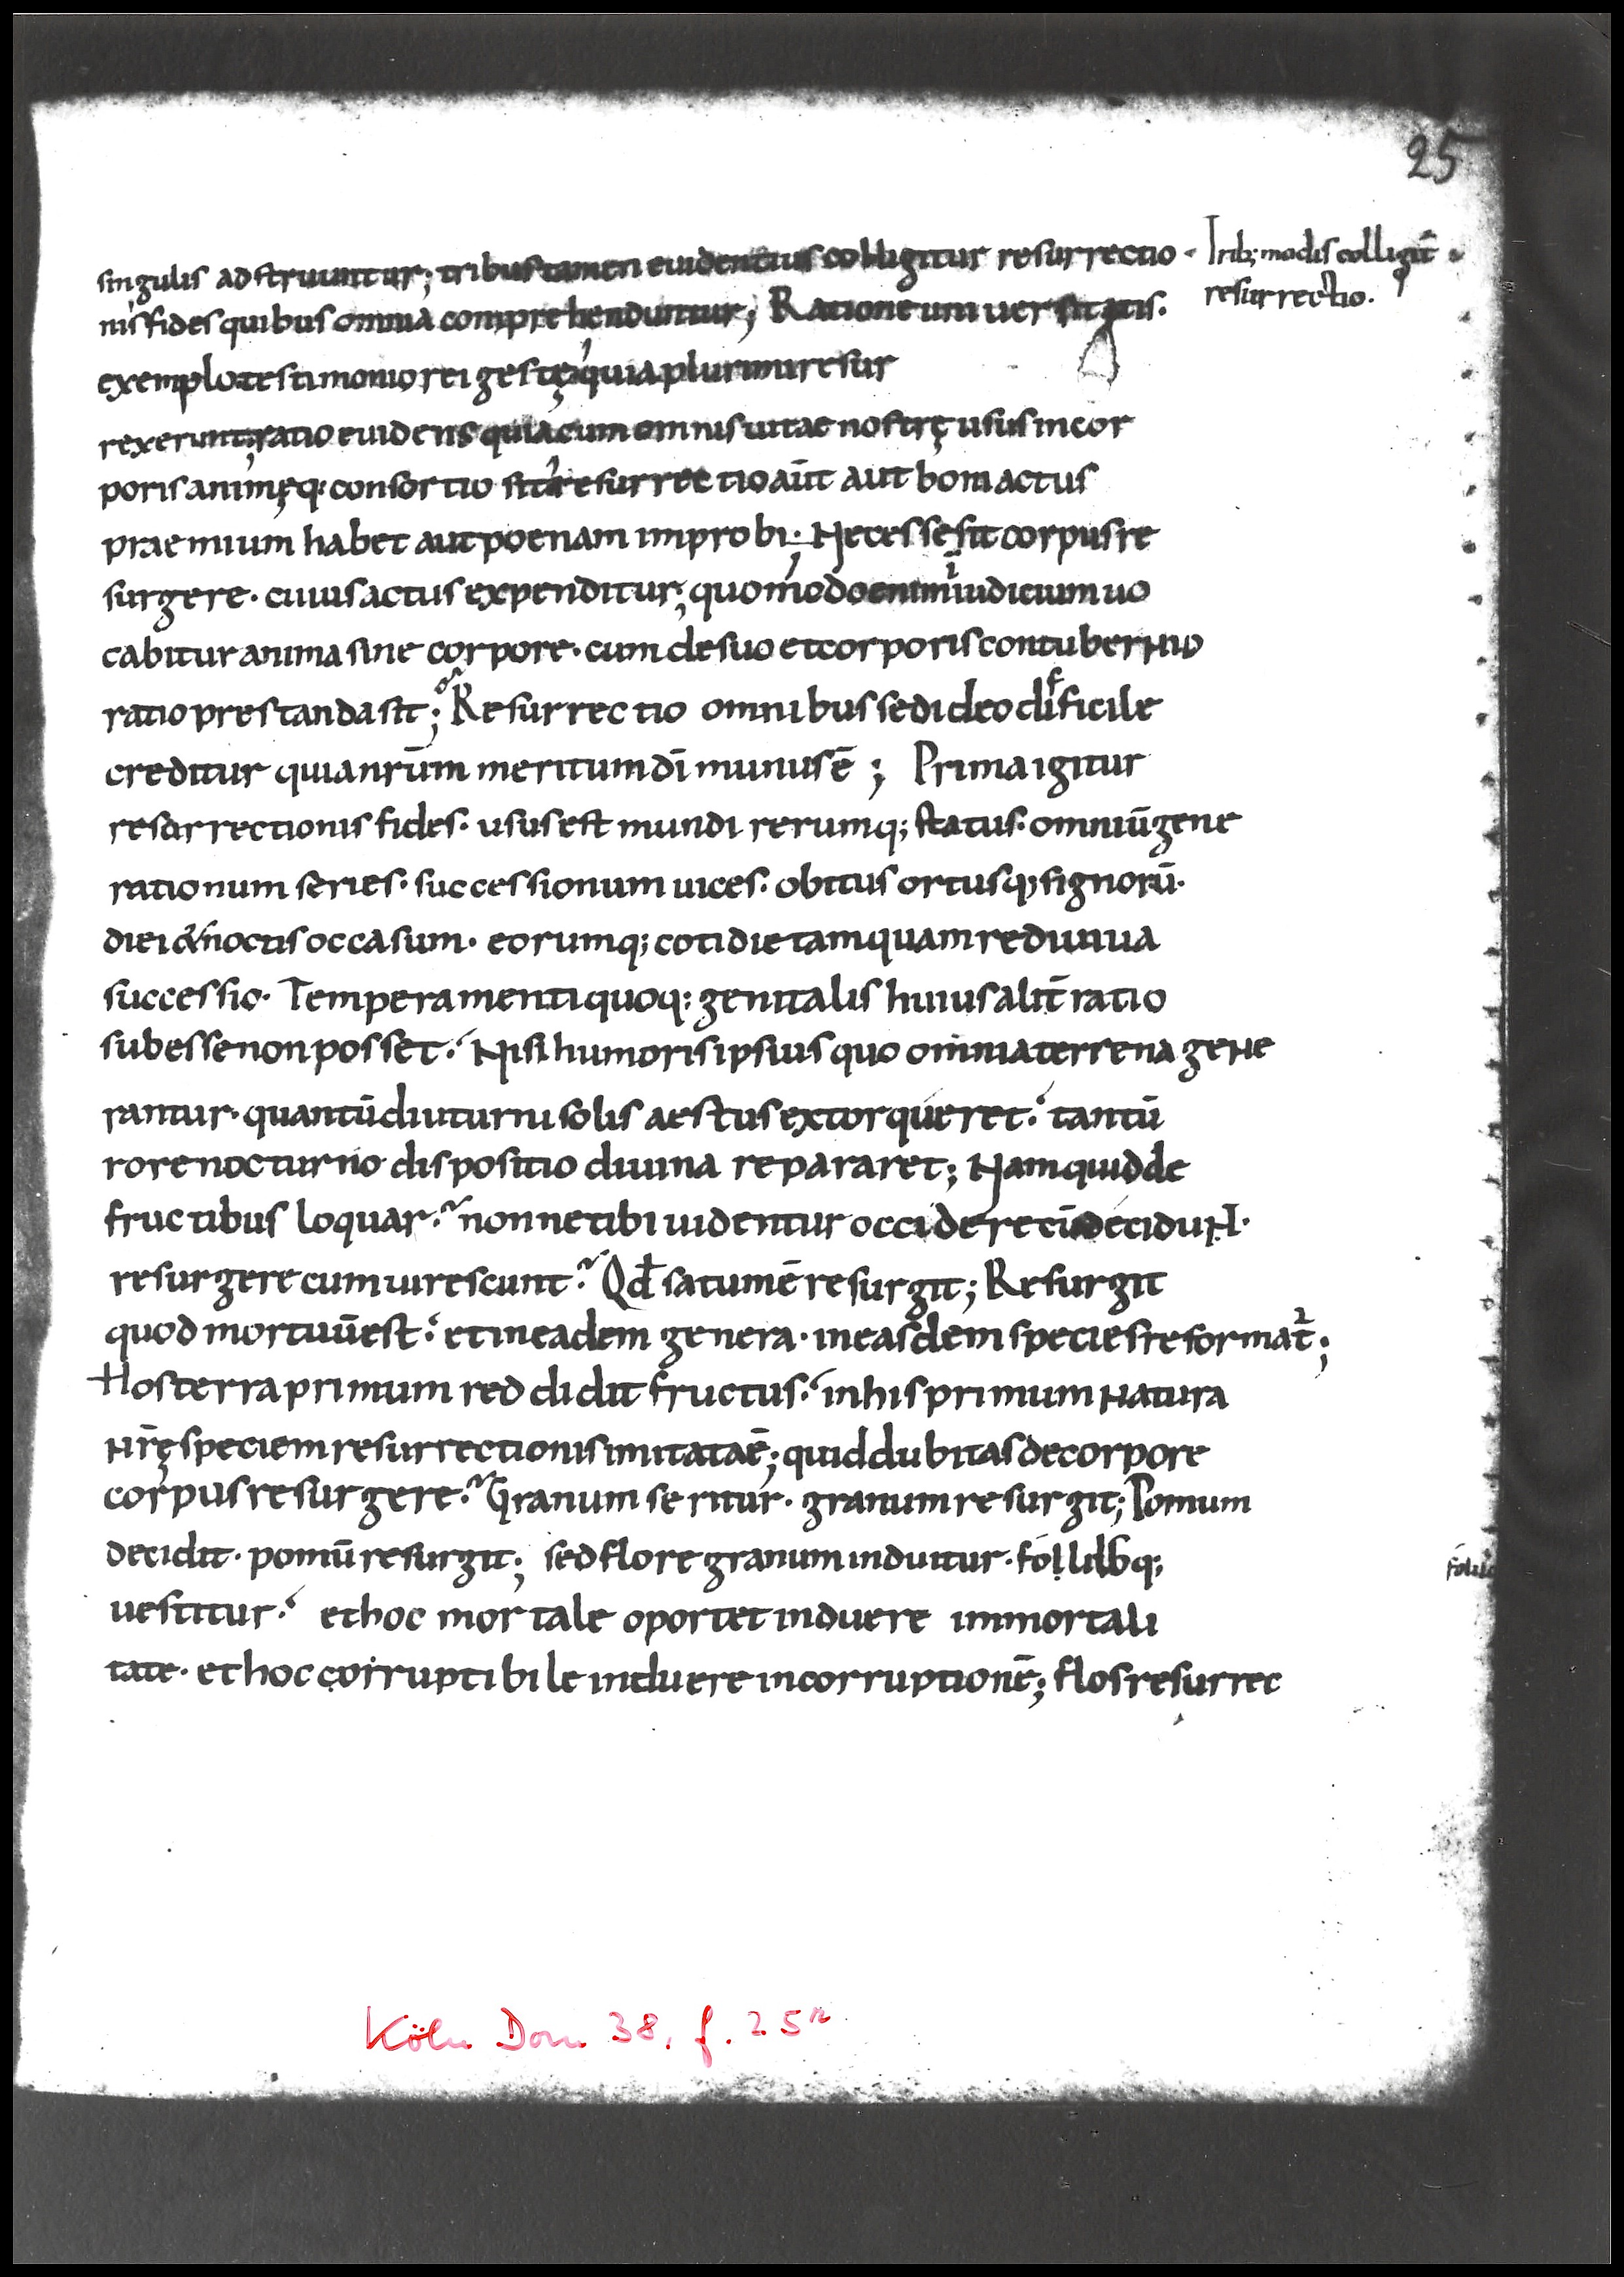 25
singulis adstruuntur; tribus tamen euidentius colligitur resurrectio
Trib; modis colligit̄
resurrectio.
nis fides quibus omnia comprehenduntur; Ratione uniuersitatis.
exemplo testimonio rei gestę quia plurimi resur
rexerunt; ratio euidens quia cum omnis uitae nostrę usus in cor
poris animęq: consortio sit resurrectio aūt aut boni actus
praemium habet aut poenam improbi; Necesse sit corpus re
surgere· cuius actus expenditur; quomodo enim iudicium uo
cabitur anima sine corpore· cum de suo et corporis contubernio
ratio prestanda sit; Resurrectio omnibus sed ideo difficile
creditur quia nr̄um meritum dī munus ē; Prima igitur
resurrectionis fides· usus est mundi rerumq; status· omniū gene
rationum series· successionum uices· obitus ortusq; signorū·
diei & noctis occasum· eorumq; cotidie tamquam rediuiua
successio· Temperamenti quoq: genitalis huius alit̄ ratio
subesse non posset. Nisi humoris ipsius quo omnia terrena gene
rantur· quantū diuturni solis aestus extorqueret. tantū
rore nocturno dispositio diuina repararet; Nam quid de
fructibus loquar. nonne tibi uidentur occidere cū decidunt·
resurgere cum uirescunt. Qd̄ satum ē resurgit; Resurgit
quod mortuū est. et in eadem genera· in easdem species reformat̄;
Hos terra primum reddidit fructus. in his primum natura
nr̄ę speciem resurrectionis imitata ē; quid dubitas de corpore
corpus resurgere. Granum seritur· granum resurgit; Pomum
decidit· pomū resurgit; sed flore granum induitur· follibq;
uestitur. et hoc mortale oportet induere immortali
tate· et hoc corruptibile induere incorruptionē; flos resurrec
Köln Dom 38, f. 25r